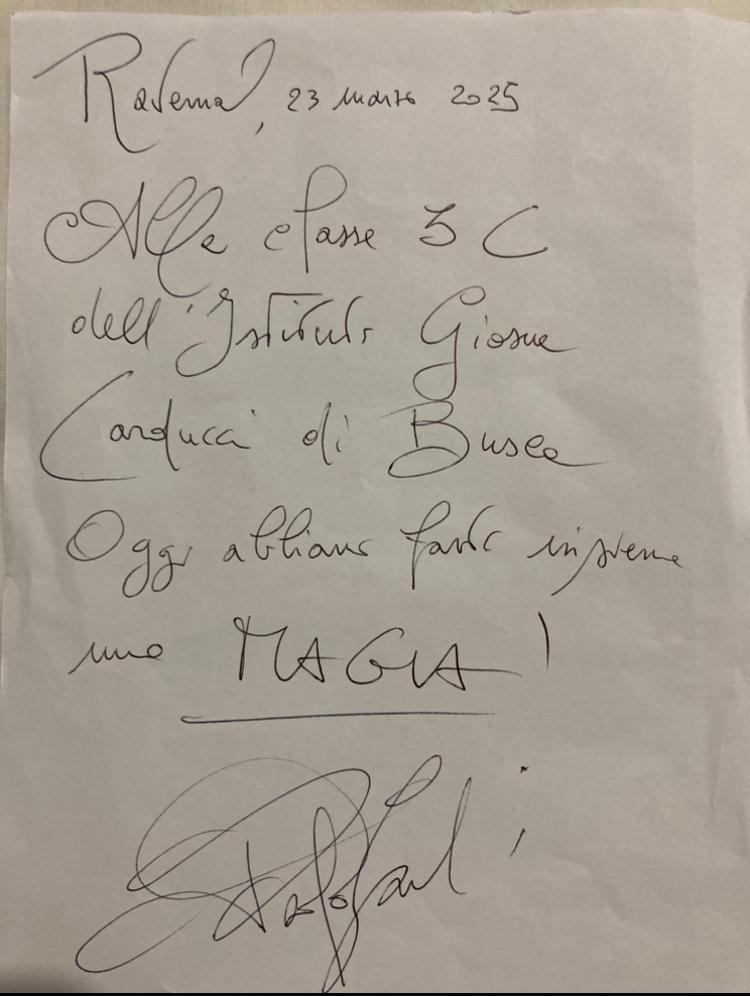 Ravenna, 23 marzo 2025
Alla classe 3 C
dell'Istituto Giosue
Carducci di Busca
Oggi abbiamo fatto insieme
una MAGIA!